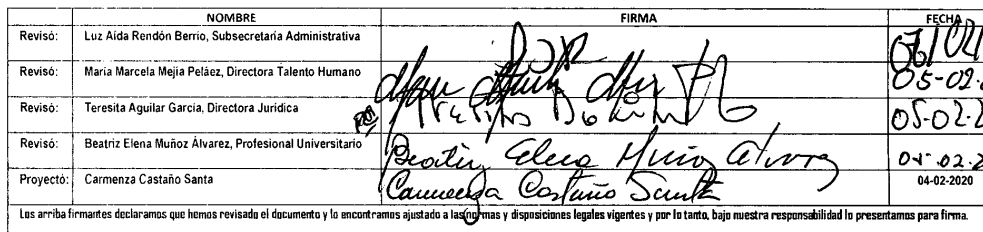 NOMBRE FIRMA FECHA
Revisó: Luz Aída Rendón Berrio, Subsecretaria Administrativa 06/02/
Revisó: María Marcela Mejía Peláez, Directora Talento Humano 05-02-
Revisó: Teresita Aguilar García, Directora Jurídica 05-02-2
Revisó: Beatriz Elena Muñoz Álvarez, Profesional Universitario Beatriz Elena Muñoz Alvarez 04-02-2
Proyectó: Carmenza Castaño Santa Carmenza Castaño Santa 04-02-2020
Los arriba firmantes declaramos que hemos revisado el documento y lo encontramos ajustado a las normas y disposiciones legales vigentes y por lo tanto, bajo nuestra responsabilidad lo presentamos para firma.